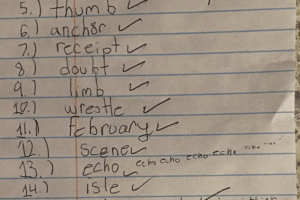 5.) thumb ✓
6.) anchor ✓
7.) receipt ✓
8.) doubt ✓
9.) limb ✓
10.) wrestle ✓
11.) February ✓
12.) scene ✓
13.) echo echo echo echo echo echo ✓
14.) isle ✓